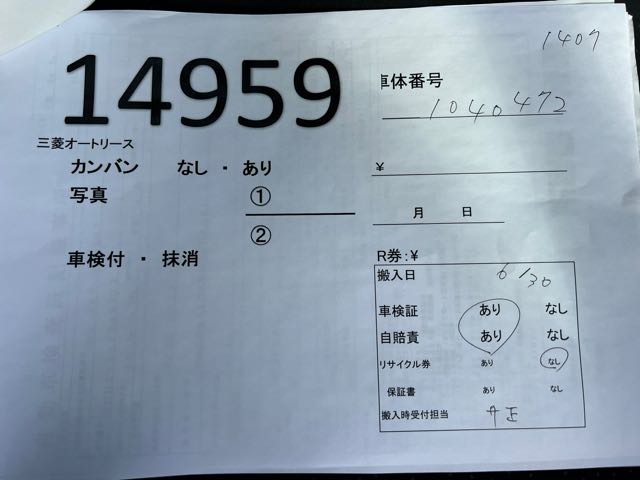 1407
14959
車体番号
1040472
三菱オートリース
カンバン なし ・ あり
¥
写真 ①
月 日
②
車検付 ・ 抹消
R券:¥
搬入日 6/30
車検証 あり なし
自賠責 あり なし
リサイクル券 あり なし
保証書 あり なし
搬入時受付担当